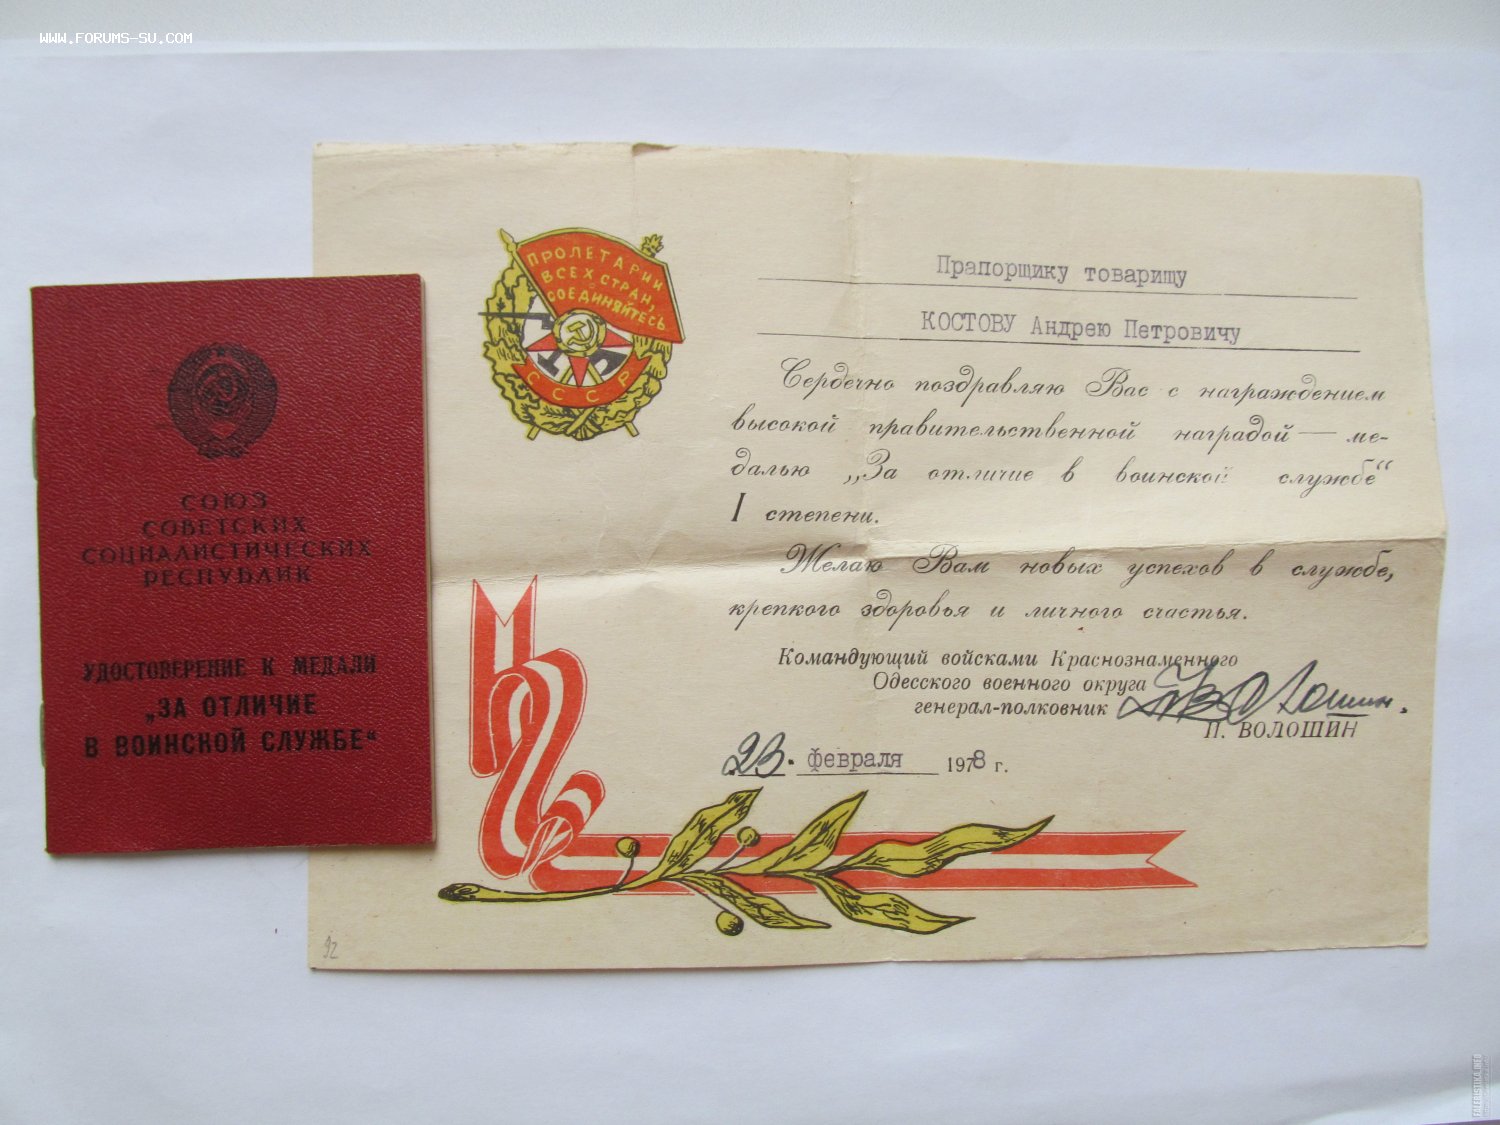 WWW.FORUMS-SU.COM
СОЮЗ
СОВЕТСКИХ
СОЦИАЛИСТИЧЕСКИХ
РЕСПУБЛИК
УДОСТОВЕРЕНИЕ К МЕДАЛИ
„ЗА ОТЛИЧИЕ
В ВОИНСКОЙ СЛУЖБЕ“
ПРОЛЕТАРИИ
ВСЕХ СТРАН,
СОЕДИНЯЙТЕСЬ
СССР
Прапорщику товарищу
КОСТОВУ Андрею Петровичу
Сердечно поздравляю Вас с награждением
высокой правительственной наградой — ме-
далью „За отличие в воинской службе“
I степени.
Желаю Вам новых успехов в службе,
крепкого здоровья и личного счастья.
Командующий войсками Краснознаменного
Одесского военного округа
генерал-полковник
Волошин.
П. ВОЛОШИН
23. февраля 1978 г.
92
FALERISTIKA.INFO